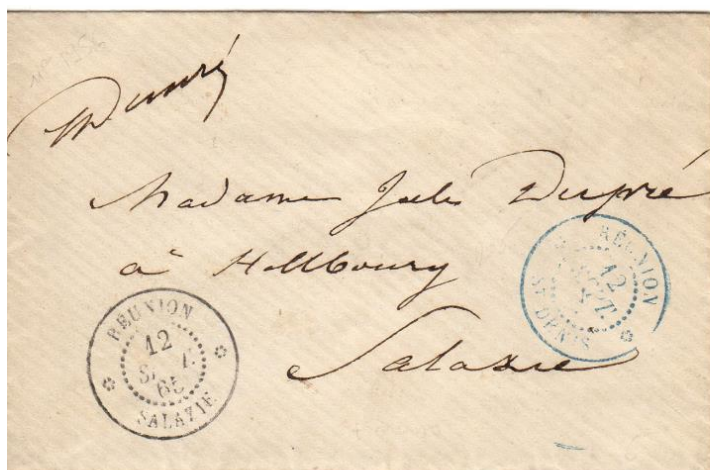 Dupré
Madame Jules Dupré
à Hellbourg
Salazie
RÉUNION
12
SEPT.
65
SALAZIE
RÉUNION
12
SEPT.
ST DENIS